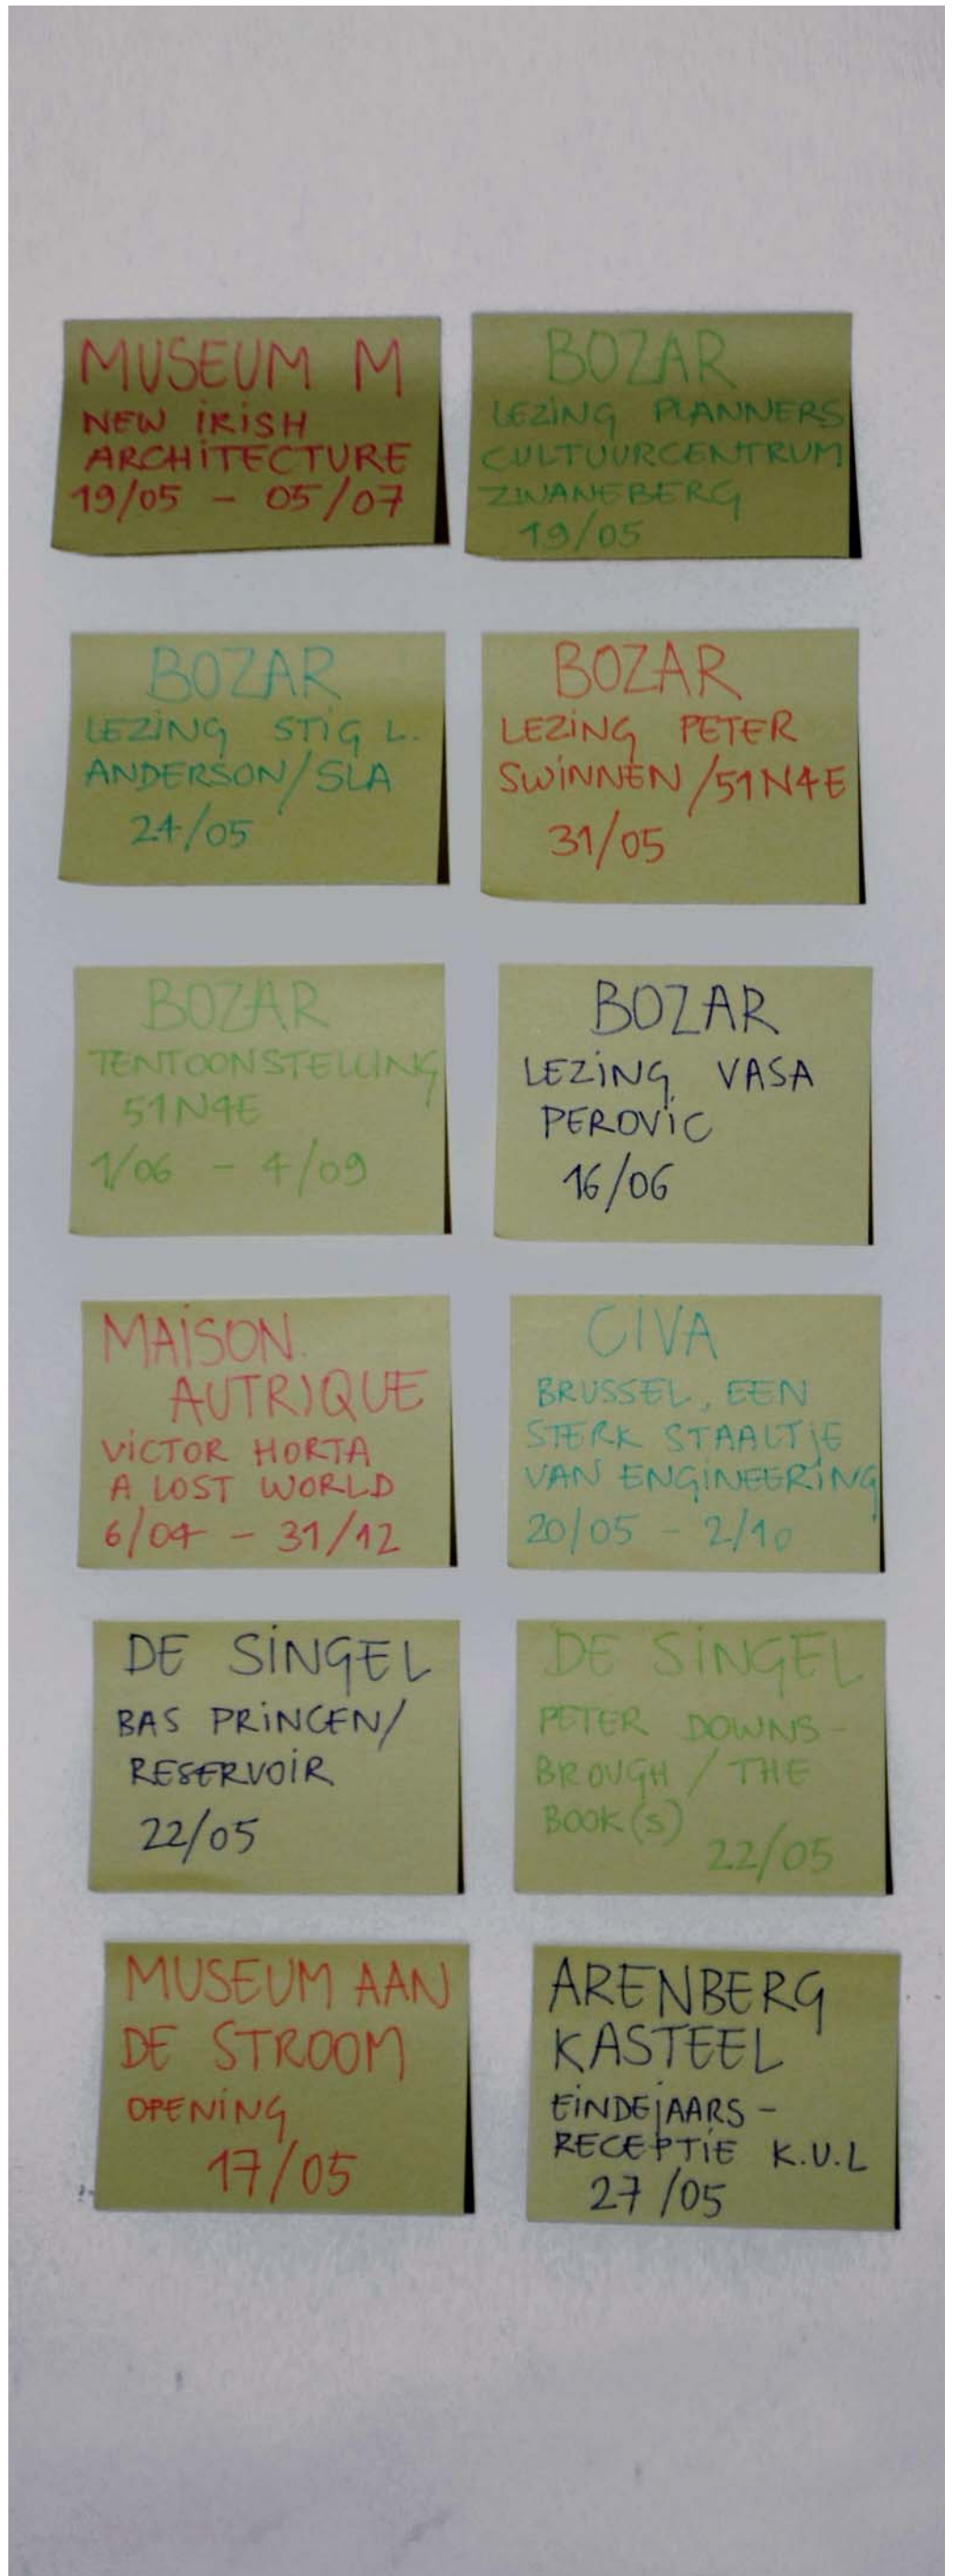 MUSEUM M
NEW IRISH
ARCHITECTURE
19/05 - 05/07
BOZAR
LEZING PLANNERS
CULTUURCENTRUM
ZWANEBERG
19/05
BOZAR
LEZING STIG L.
ANDERSON/SLA
24/05
BOZAR
LEZING PETER
SWINNEN/51N4E
31/05
BOZAR
TENTOONSTELLING
51N4E
1/06 - 4/09
BOZAR
LEZING VASA
PEROVIC
16/06
MAISON
AUTRIQUE
VICTOR HORTA
A LOST WORLD
6/04 - 31/12
CIVA
BRUSSEL, EEN
STERK STAALTJE
VAN ENGINEERING
20/05 - 2/10
DE SINGEL
BAS PRINCEN/
RESERVOIR
22/05
DE SINGEL
PETER DOWNS-
BROUGH / THE
BOOK(S)
22/05
MUSEUM AAN
DE STROOM
OPENING
17/05
ARENBERG
KASTEEL
EINDEJAARS-
RECEPTIE K.U.L
27/05